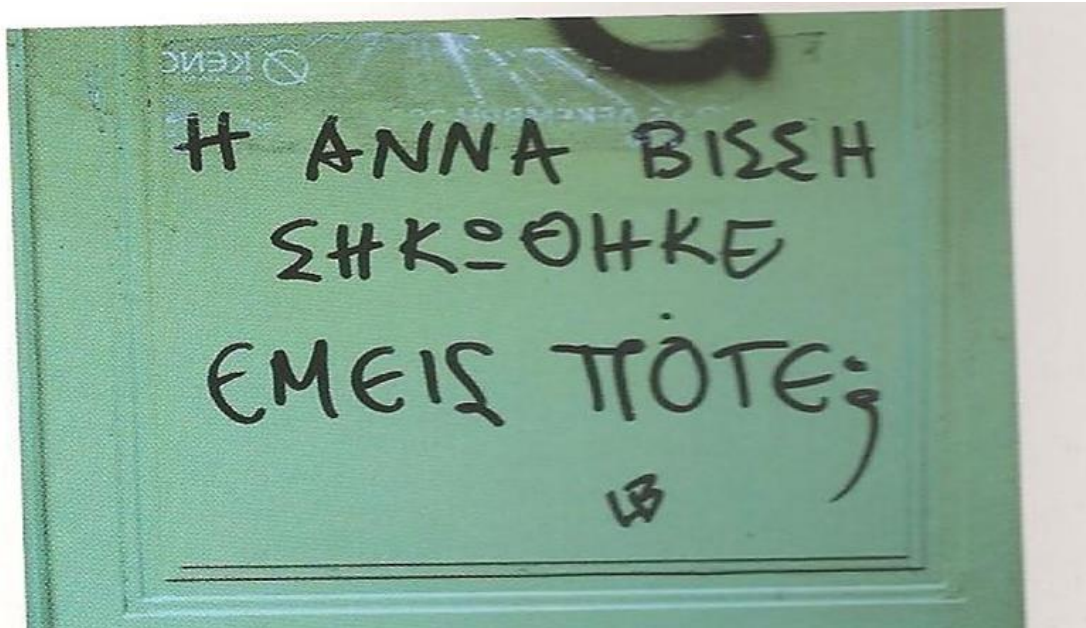 Η ΑΝΝΑ ΒΙΣΣΗ
ΣΗΚΩΘΗΚΕ
ΕΜΕΙΣ ΠΟΤΕ;